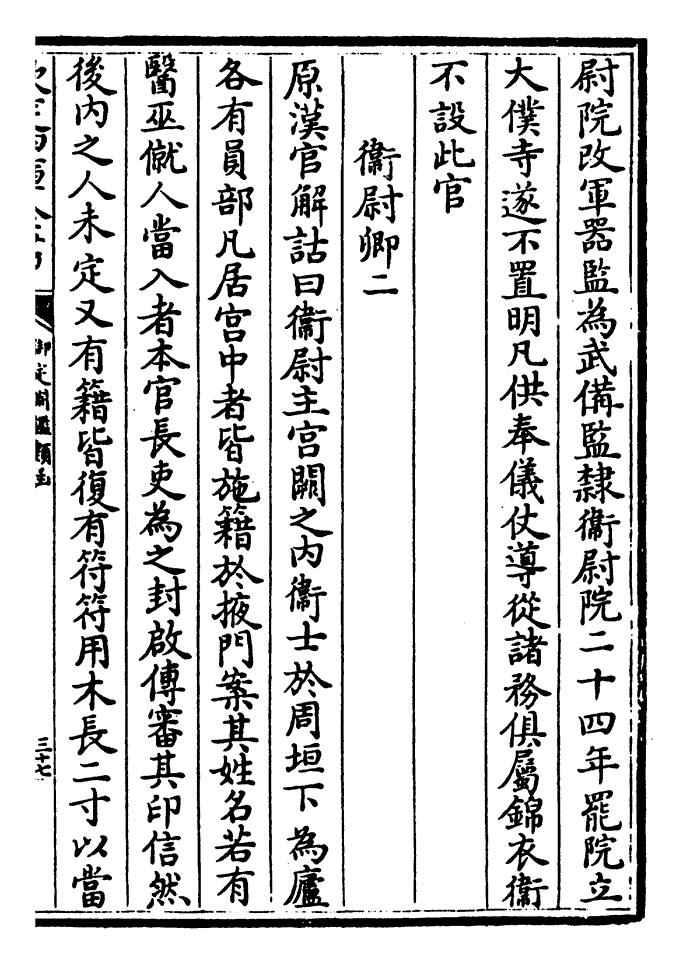 尉院改軍器監為武備監隸衞尉院二十四年罷院立
大僕寺遂不置明凡供奉儀仗導從諸務俱屬錦衣衞
不設此官
衞尉卿二
原漢官解詁曰衞尉主宫闕之内衞士於周垣下為廬
各有員部凡居宫中者皆施籍於掖門案其姓名若有
醫巫僦人當入者本官長吏為之封啟傳審其印信然
後内之人未定又有籍皆復有符符用木長二寸以當
御定淵鑑類函
三十七